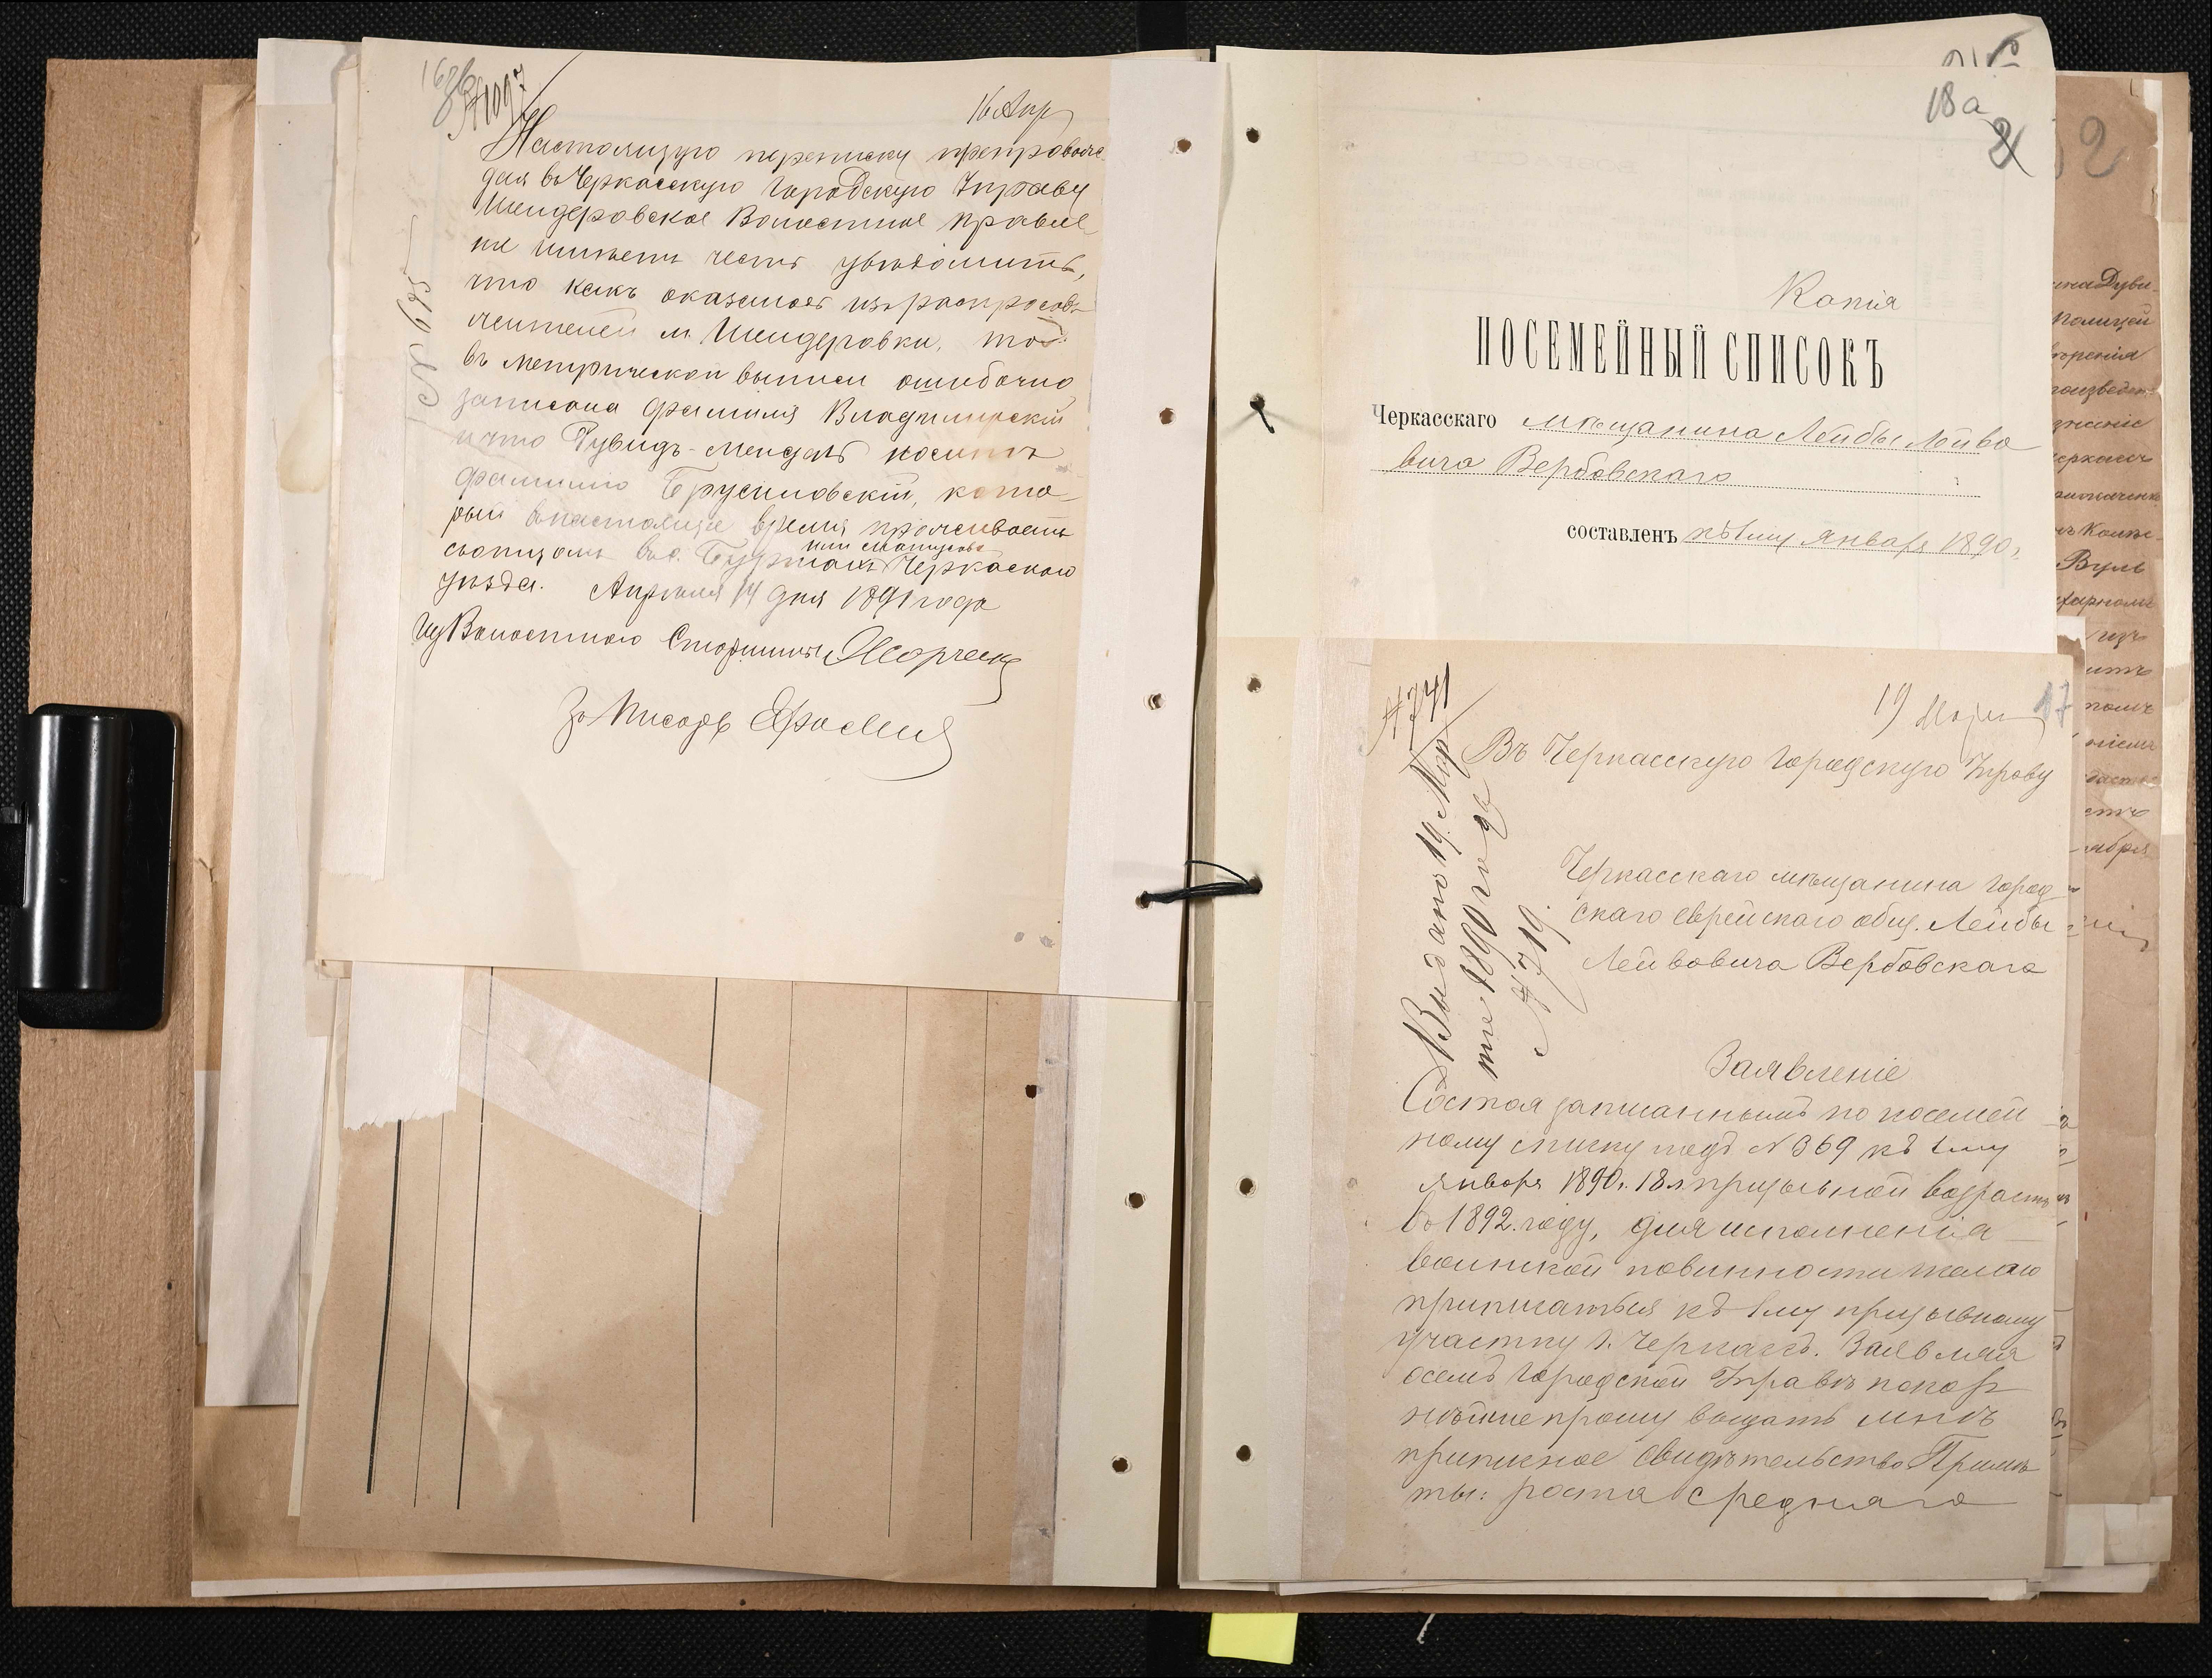 16 Апр
№ 1097
Настоящую переписку препровож
дая въ Черкасскую Городскую Управу
Шендеровское Волостное Правле
ніе имѣетъ честь увѣдомить,
что какъ оказалось изъ распросовъ
жителей м. Шендеровки, то
въ метрической выписи ошибочно
записана фамилія Владимирскій
и что Дувидъ-Мендель носитъ
фамилію Брусиловскій, кото-
рый въ настоящее время проживаетъ
съ отцомъ въ с.
или
Черкаскаго
уѣзда. Апрѣля 14 дня 1891 года
Волостного Старшины
За Писаръ
№ 615
18а
2
2
Копія
ПОСЕМЕЙНЫЙ СПИСОКЪ
Черкасскаго мѣщанина Лейбы Лейво
вича Вербовскаго
составленъ къ 1му января 1890 г.
№ 741
19 Марта
17
Въ Черкасскую Городскую Управу
Черкасскаго мѣщанина город
скаго еврейскаго общ. Лейбы
Лейвовича Вербовскаго
Выдано 19 Мар
та 1890 года
№ 719.
Заявленіе
Состоя записаннымъ по посемей
ному списку подъ № 369 къ 1му
января 1890 г. 18 л призывной возрастъ
въ 1892 году, для исполненія
воинской повинности желаю
приписаться къ 1му призывному
участку г. Черкасъ. Заявляя
о семъ Городской Управѣ покор
нѣйше прошу выдать мнѣ
приписное свидѣтельство Примѣ
ты: роста средняго